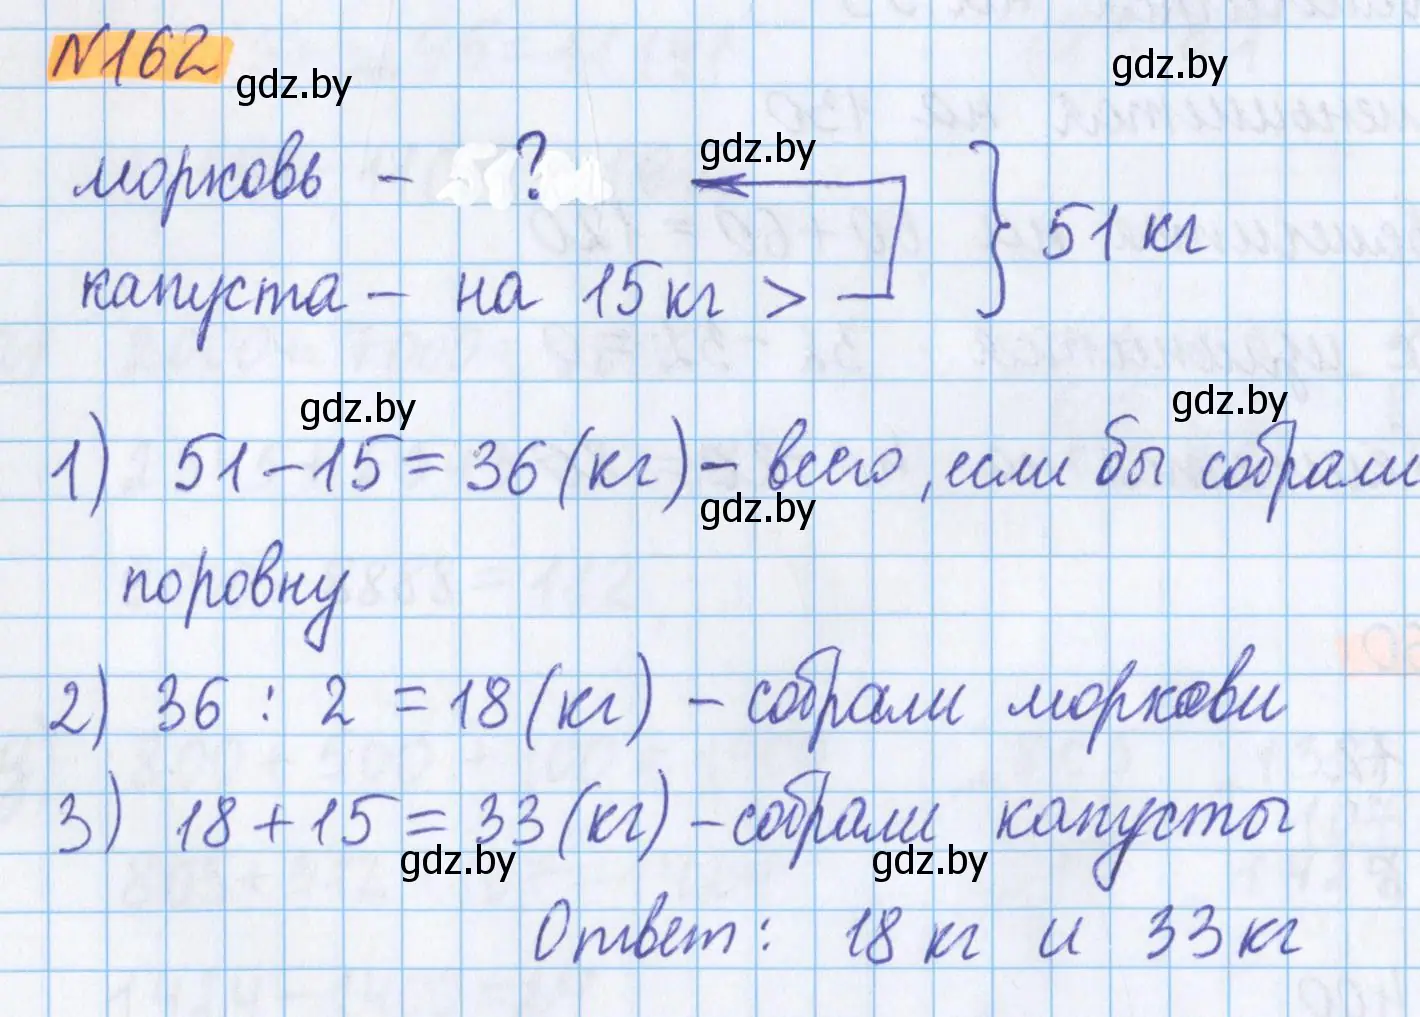 N162
gdz.by
gdz.by
морковь - ?
gdz.by
51 кг
капуста - на 15 кг >
gdz.by
gdz.by
1) 51-15=36(кг)- всего, если бы собрали
gdz.by
поровну
2) 36 : 2 = 18(кг) - собрали моркови
3) 18+15=33(кг) - собрали капусты
gdz.by
gdz.by
Ответ: 18 кг и 33 кг